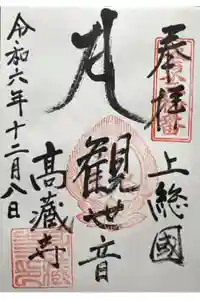 奉拝
上総國
観世音
高藏寺
令和六年十二月八日